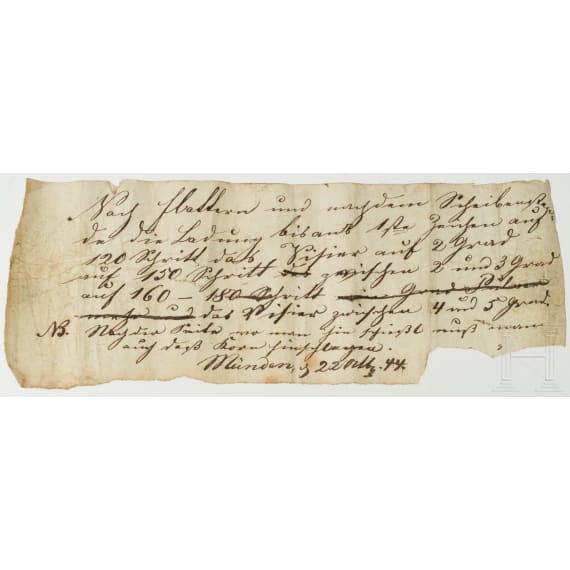 Nach Blattern und nachdem Scheibenstan
de die Ladung bis ans 1ste Zeichen auf
120 Schritt das Visier auf 2 Grad
auf 150 Schritt zwischen 2 und 3 Grad
auf 160 – 180 Schritt Grad
das Visier zwischen 4 und 5 Grad
NB. Nach der Seite wo man hin schießt muß man
auch daß Korn hinschlagen.
Münden, 22 44.
H